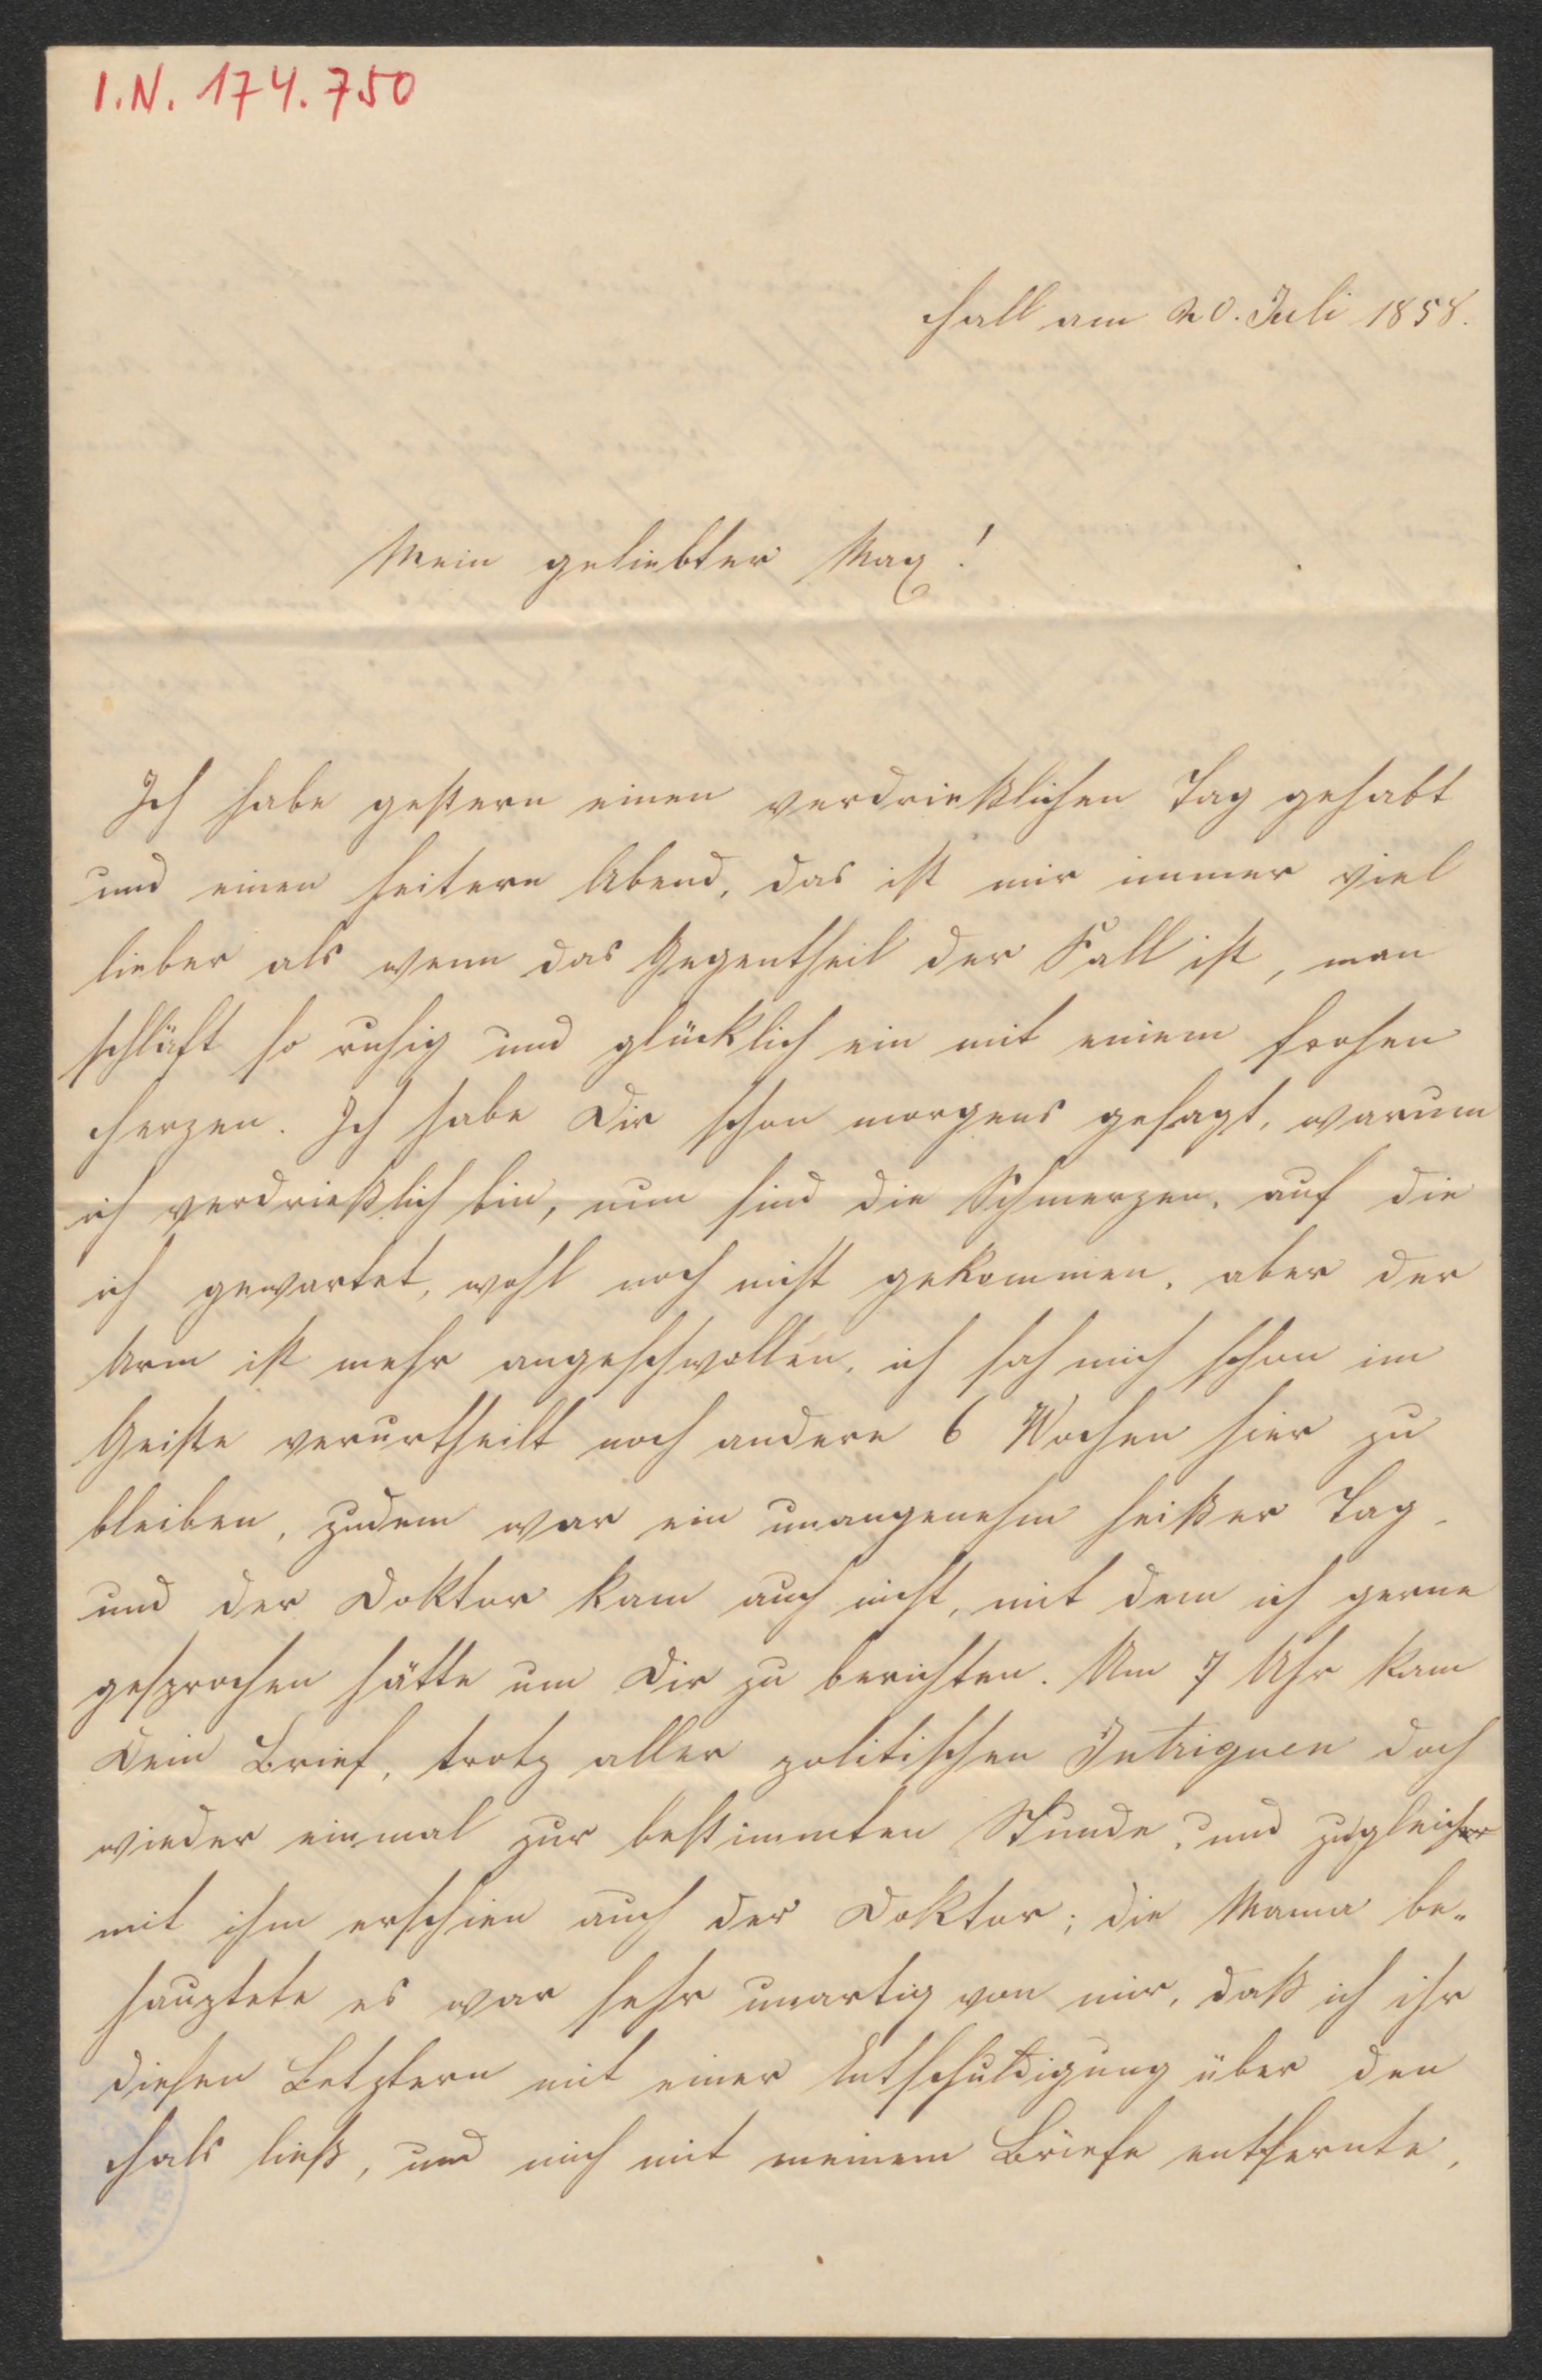 I.N. 174.750
Hall am 20. Juli 1858.
Mein geliebter Max!
Ich habe gestern einen verdrießlichen Tag gehabt
und einen heitern Abend, das ist mir immer viel
lieber als wenn das Gegentheil der Fall ist, man
schläft so ruhig und glücklich ein mit einem frohen
Herzen. Ich habe Dir schon morgens gesagt, warum
ich verdrießlich bin, nun sind die Schmerzen, auf die
ich gewartet, wohl noch nicht gekommen, aber der
Arm ist mehr angeschwollen, ich sah mich schon im
Geiste verurtheilt noch andere 6 Wochen hier zu
bleiben, zudem war ein unangenehm heißer Tag
und der Doktor kam auch nicht, mit dem ich gerne
gesprochen hätte um Dir zu berichten. Um 7 Uhr kam
Dein Brief, trotz aller politischen Intriguen doch
wieder einmal zur bestimmten Stunde, und zugleich
mit ihm erschien auch der Doktor; die Mama be-
hauptete es war sehr unartig von mir, daß ich ihr
diesen Letztern mit einer Entschuldigung über den
Hals ließ, und mich mit meinem Briefe entfernte,